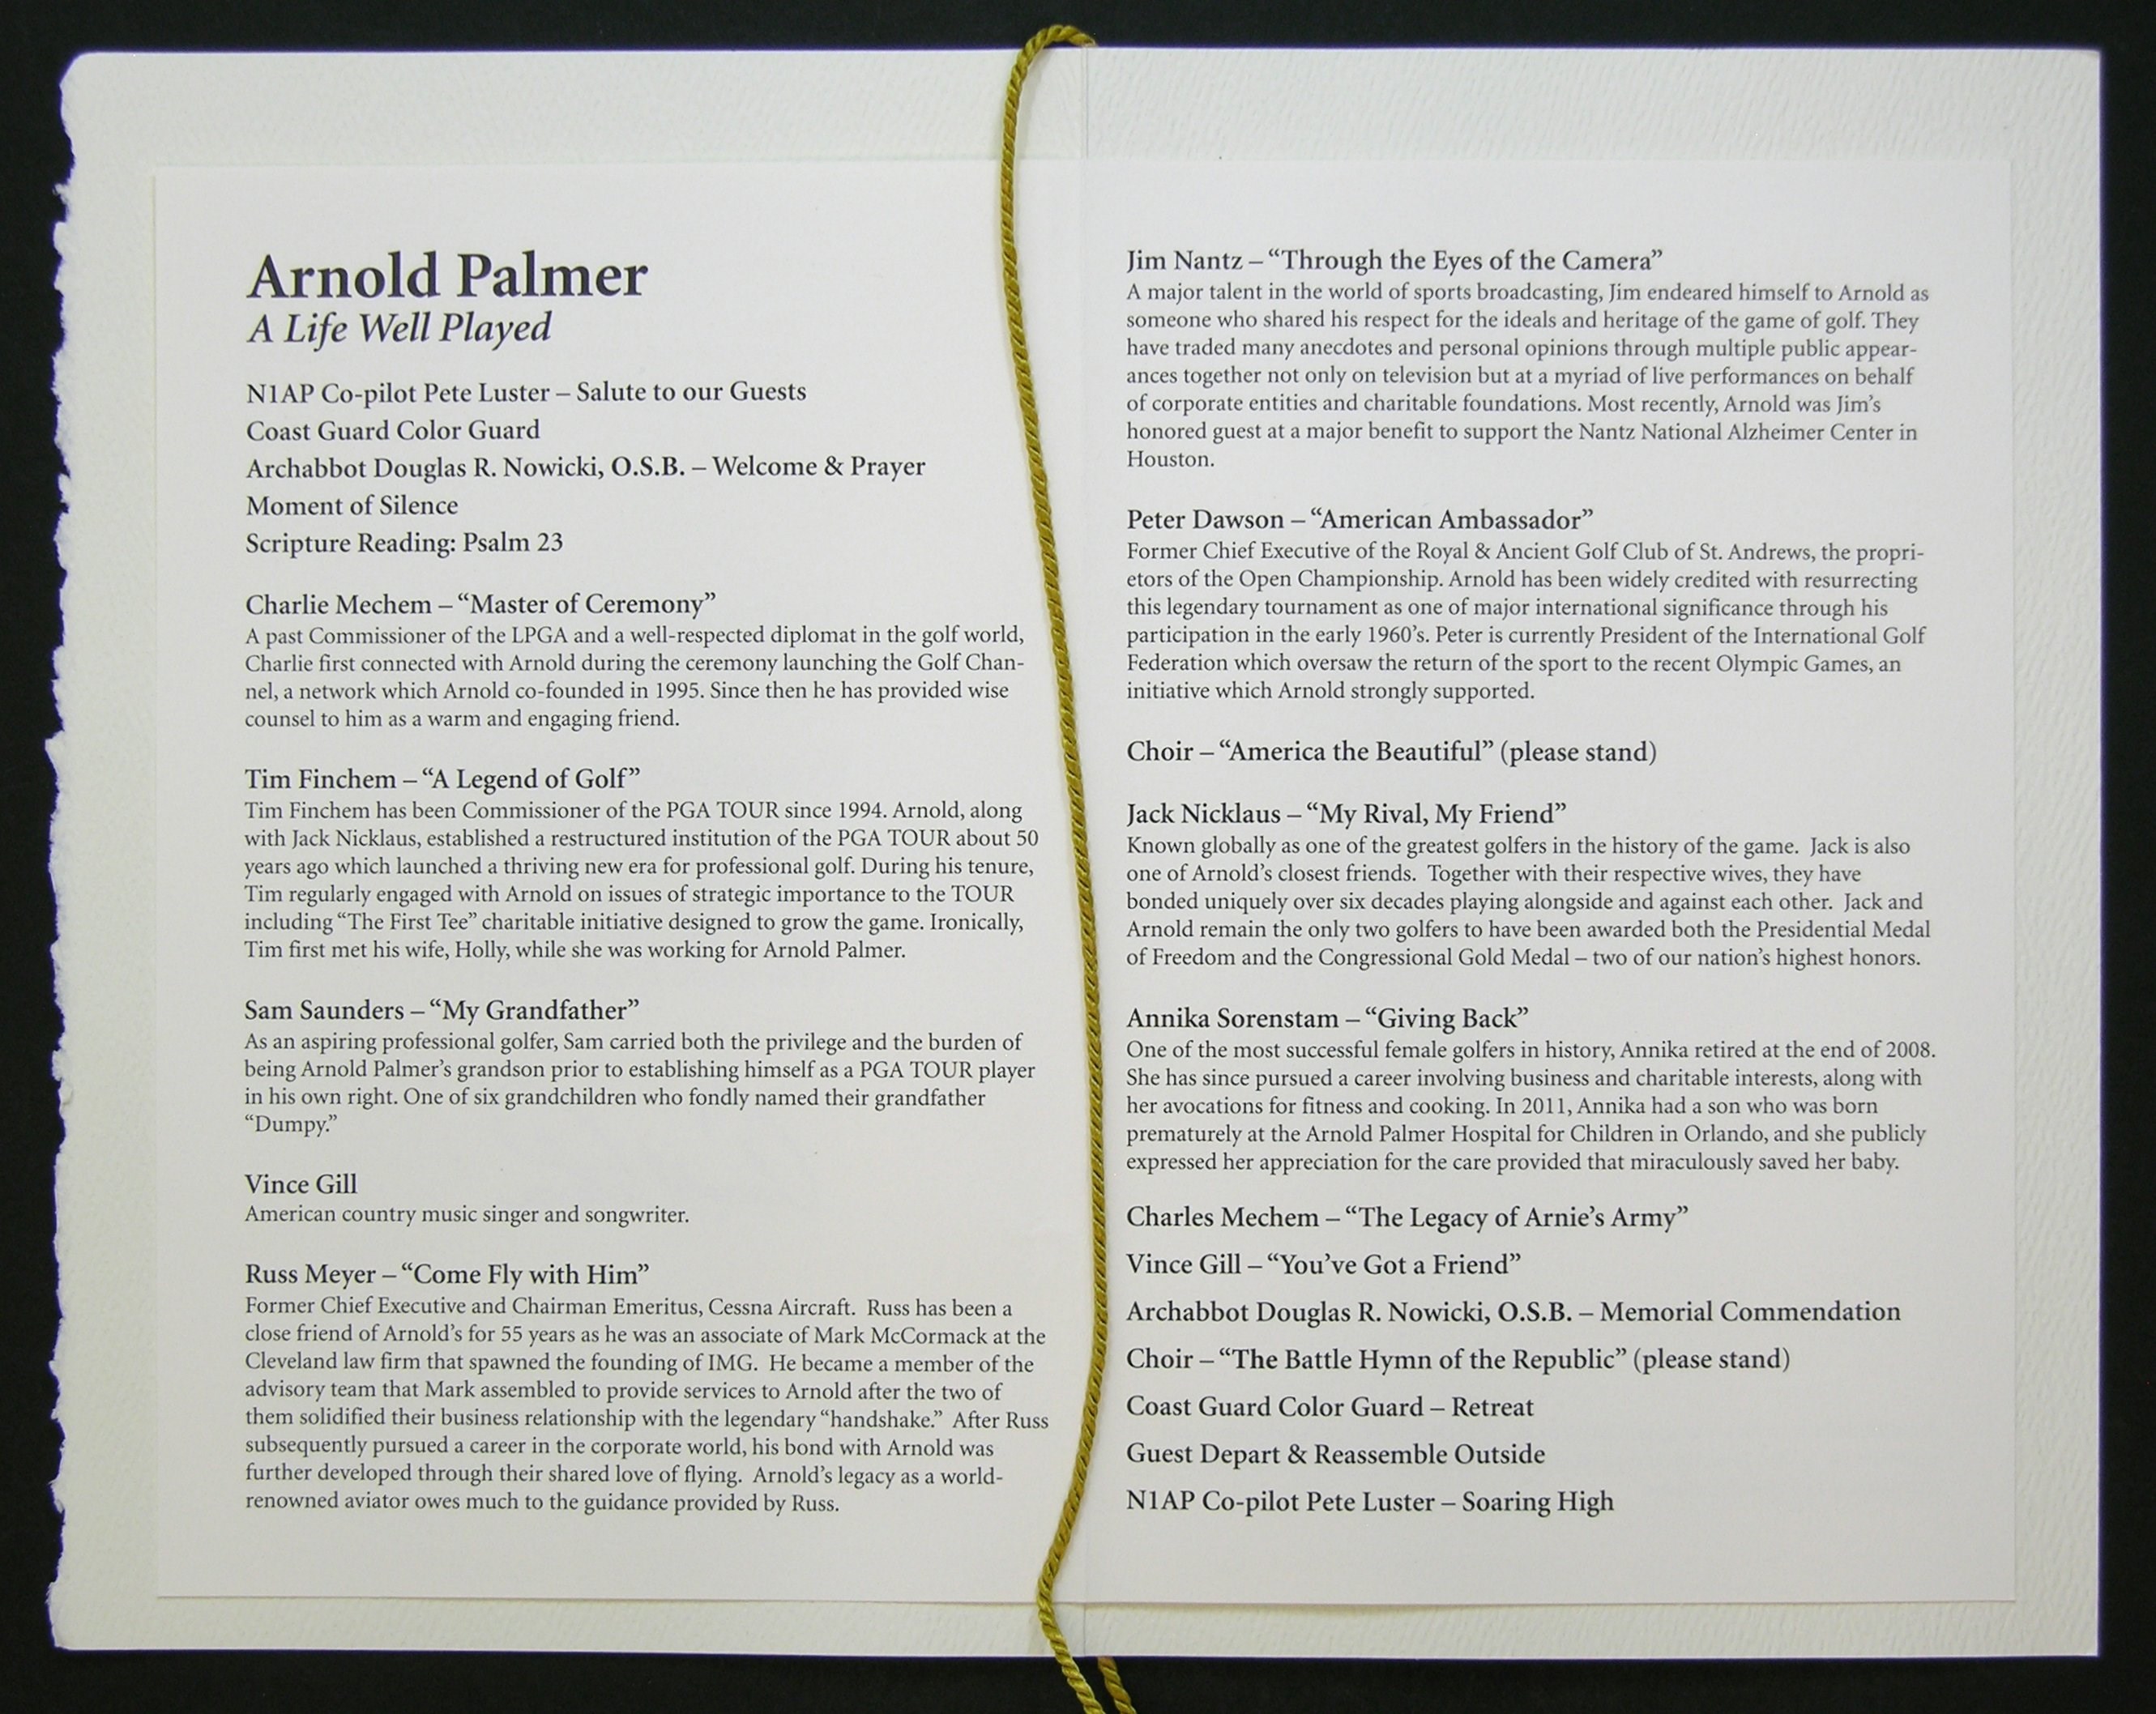 Arnold Palmer
A Life Well Played
N1AP Co-pilot Pete Luster – Salute to our Guests
Coast Guard Color Guard
Archabbot Douglas R. Nowicki, O.S.B. – Welcome & Prayer
Moment of Silence
Scripture Reading: Psalm 23
Charlie Mechem – “Master of Ceremony”
A past Commissioner of the LPGA and a well-respected diplomat in the golf world,
Charlie first connected with Arnold during the ceremony launching the Golf Chan-
nel, a network which Arnold co-founded in 1995. Since then he has provided wise
counsel to him as a warm and engaging friend.
Tim Finchem – “A Legend of Golf”
Tim Finchem has been Commissioner of the PGA TOUR since 1994. Arnold, along
with Jack Nicklaus, established a restructured institution of the PGA TOUR about 50
years ago which launched a thriving new era for professional golf. During his tenure,
Tim regularly engaged with Arnold on issues of strategic importance to the TOUR
including “The First Tee” charitable initiative designed to grow the game. Ironically,
Tim first met his wife, Holly, while she was working for Arnold Palmer.
Sam Saunders – “My Grandfather”
As an aspiring professional golfer, Sam carried both the privilege and the burden of
being Arnold Palmer’s grandson prior to establishing himself as a PGA TOUR player
in his own right. One of six grandchildren who fondly named their grandfather
“Dumpy.”
Vince Gill
American country music singer and songwriter.
Russ Meyer – “Come Fly with Him”
Former Chief Executive and Chairman Emeritus, Cessna Aircraft. Russ has been a
close friend of Arnold’s for 55 years as he was an associate of Mark McCormack at the
Cleveland law firm that spawned the founding of IMG. He became a member of the
advisory team that Mark assembled to provide services to Arnold after the two of
them solidified their business relationship with the legendary “handshake.” After Russ
subsequently pursued a career in the corporate world, his bond with Arnold was
further developed through their shared love of flying. Arnold’s legacy as a world-
renowned aviator owes much to the guidance provided by Russ.
Jim Nantz – “Through the Eyes of the Camera”
A major talent in the world of sports broadcasting, Jim endeared himself to Arnold as
someone who shared his respect for the ideals and heritage of the game of golf. They
have traded many anecdotes and personal opinions through multiple public appear-
ances together not only on television but at a myriad of live performances on behalf
of corporate entities and charitable foundations. Most recently, Arnold was Jim’s
honored guest at a major benefit to support the Nantz National Alzheimer Center in
Houston.
Peter Dawson – “American Ambassador”
Former Chief Executive of the Royal & Ancient Golf Club of St. Andrews, the propri-
etors of the Open Championship. Arnold has been widely credited with resurrecting
this legendary tournament as one of major international significance through his
participation in the early 1960’s. Peter is currently President of the International Golf
Federation which oversaw the return of the sport to the recent Olympic Games, an
initiative which Arnold strongly supported.
Choir – “America the Beautiful” (please stand)
Jack Nicklaus – “My Rival, My Friend”
Known globally as one of the greatest golfers in the history of the game. Jack is also
one of Arnold’s closest friends. Together with their respective wives, they have
bonded uniquely over six decades playing alongside and against each other. Jack and
Arnold remain the only two golfers to have been awarded both the Presidential Medal
of Freedom and the Congressional Gold Medal – two of our nation’s highest honors.
Annika Sorenstam – “Giving Back”
One of the most successful female golfers in history, Annika retired at the end of 2008.
She has since pursued a career involving business and charitable interests, along with
her avocations for fitness and cooking. In 2011, Annika had a son who was born
prematurely at the Arnold Palmer Hospital for Children in Orlando, and she publicly
expressed her appreciation for the care provided that miraculously saved her baby.
Charles Mechem – “The Legacy of Arnie’s Army”
Vince Gill – “You’ve Got a Friend”
Archabbot Douglas R. Nowicki, O.S.B. – Memorial Commendation
Choir – “The Battle Hymn of the Republic” (please stand)
Coast Guard Color Guard – Retreat
Guest Depart & Reassemble Outside
N1AP Co-pilot Pete Luster – Soaring High